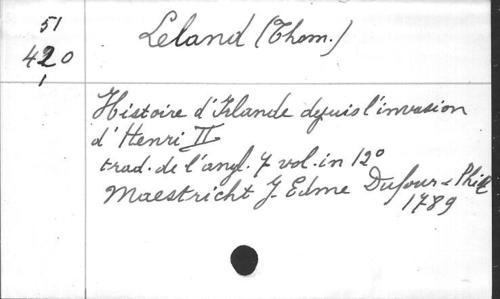 51
420
1
Leland (Thom.)
Histoire d'Irlande depuis l'invasion
d'Henri II
trad. de l'angl. 7 vol. in 12°
Maestricht J. Edme Dufour & Phil
1789